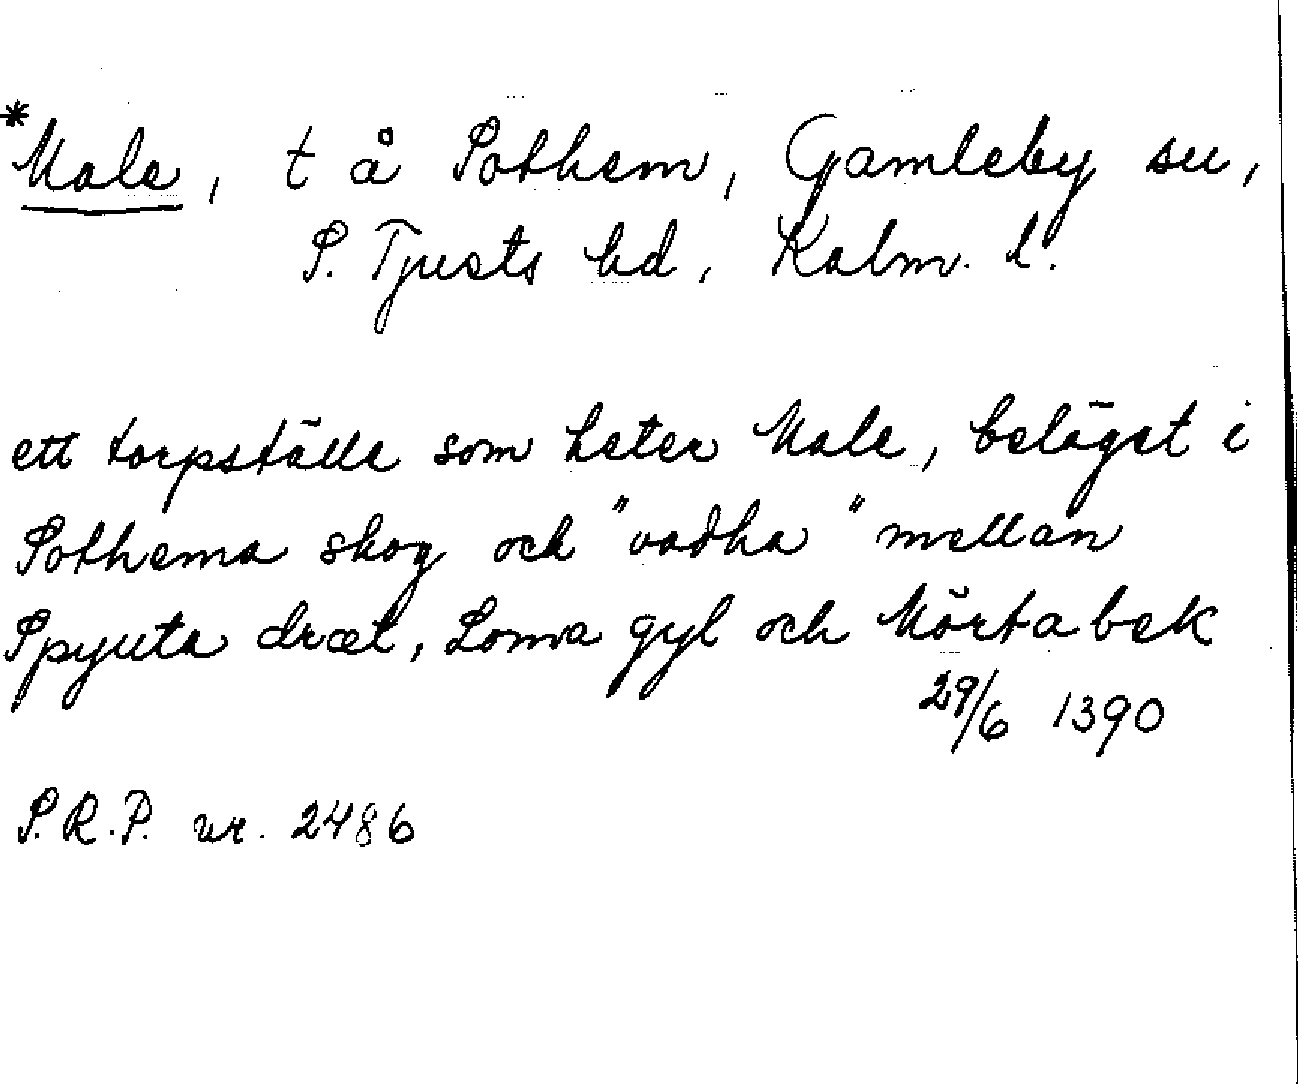 *Male, t å Sothem, Gamleby sn,
S. Tjusts hd, Kalm. l.
ett torpställe som heter Male, beläget i
Sothema skog och "vadha" mellan
Spyuta dræt, Loma gyl och Mörtabek
29/6 1390
S.R.P. nr. 2486